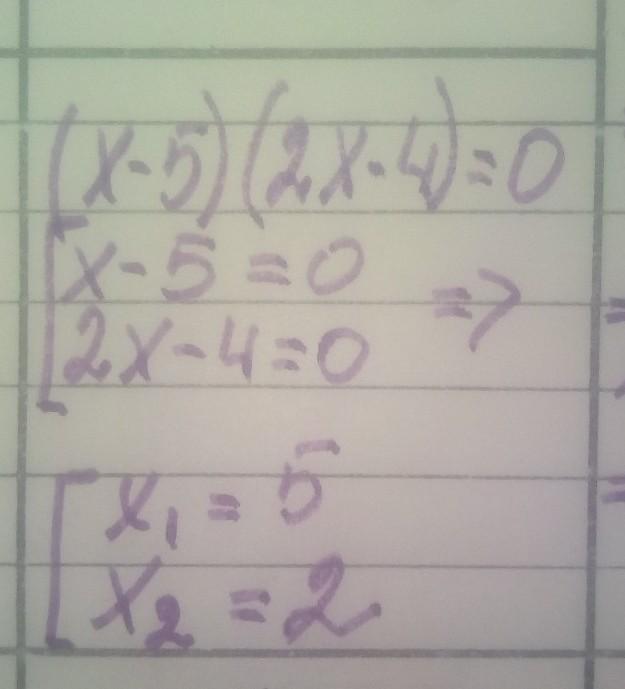 (x-5)(2x-4)=0
[x-5=0
2x-4=0 =>
[x₁=5
x₂=2.